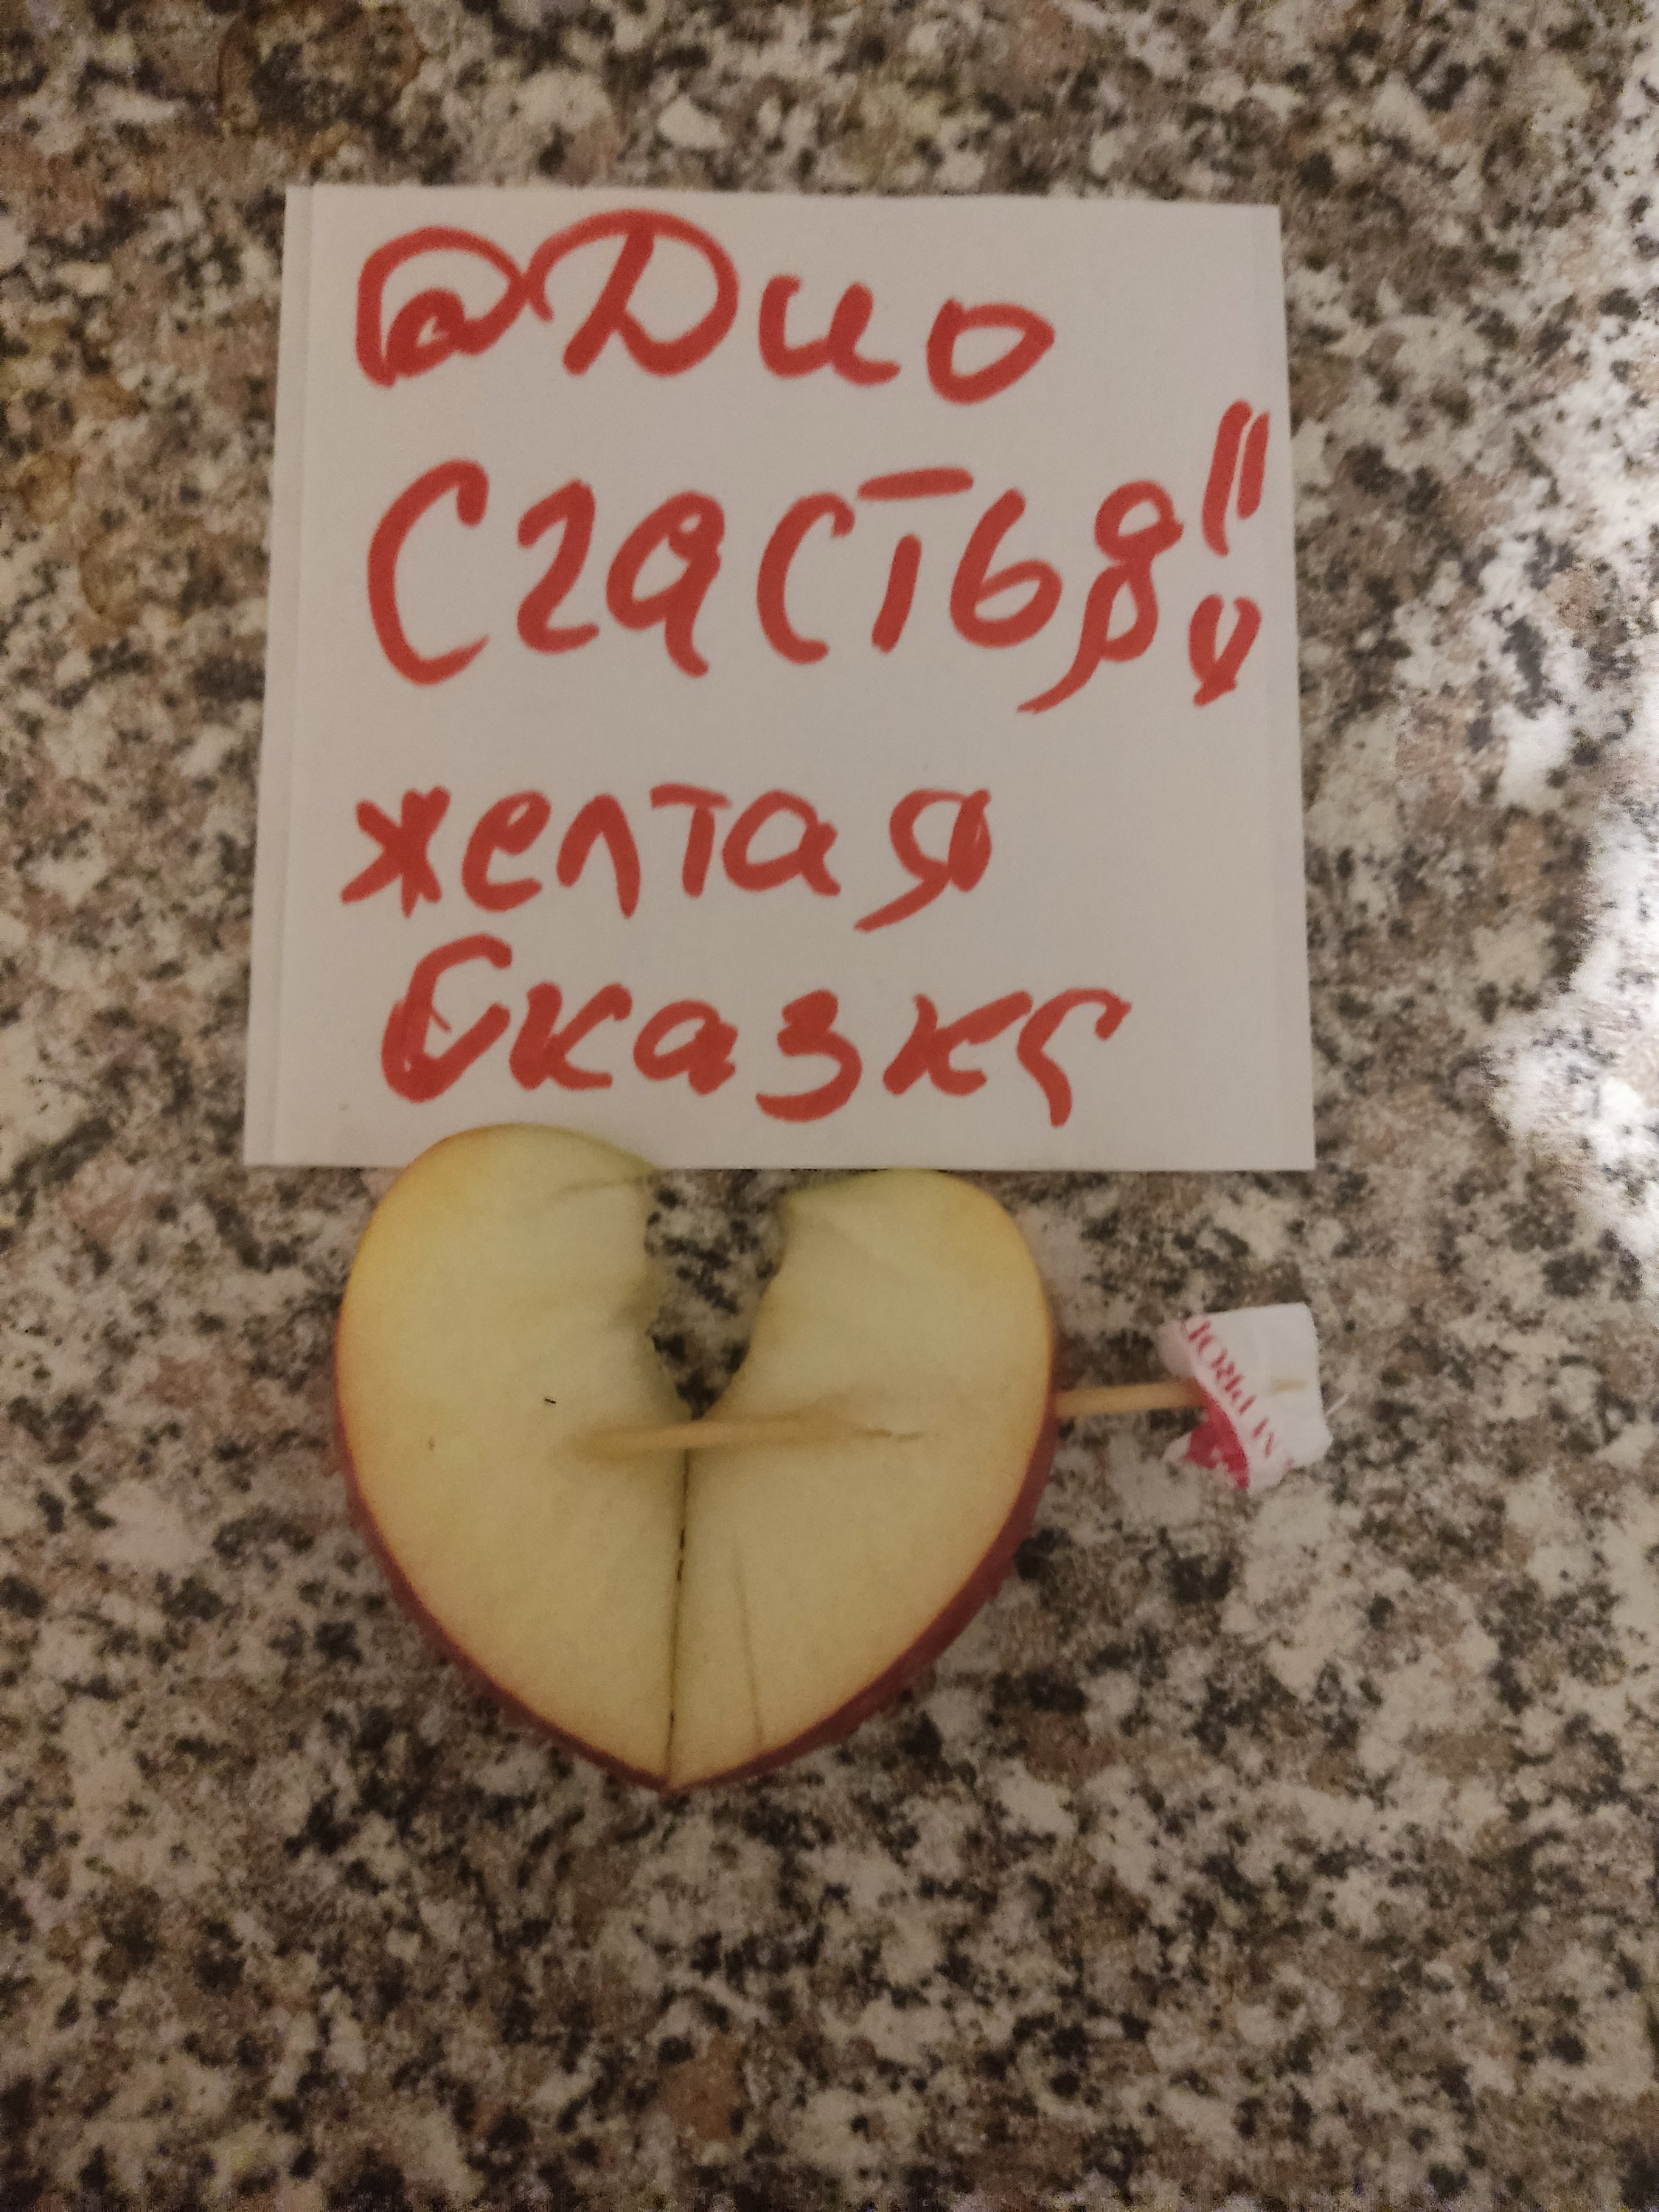 @Дио
Счастья!!
желтая
Сказка